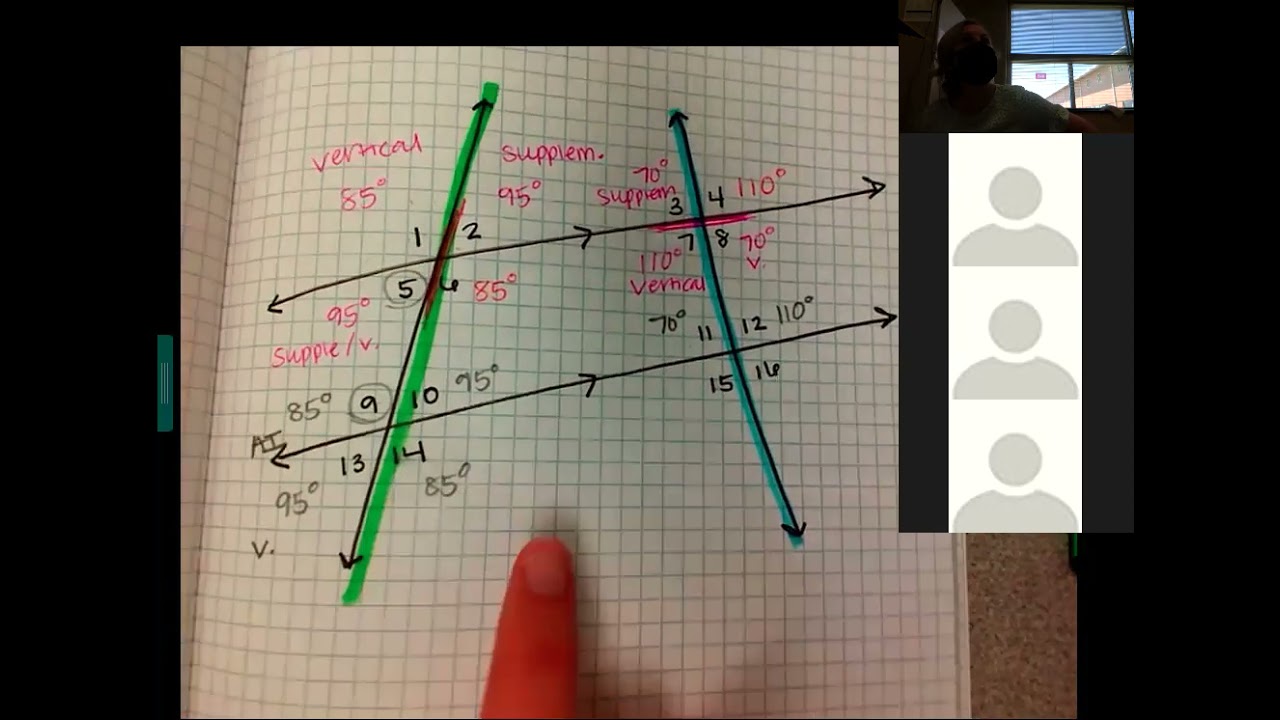 vertical
85°
supplem.
95°
70°
supplem
3 4 110°
1 2
7 8 70°
110° V.
vertical
5 6 85°
95°
supple/v.
70° 11 12 110°
15 16
85° 9 10 95°
AI
13 14
95° 85°
V.